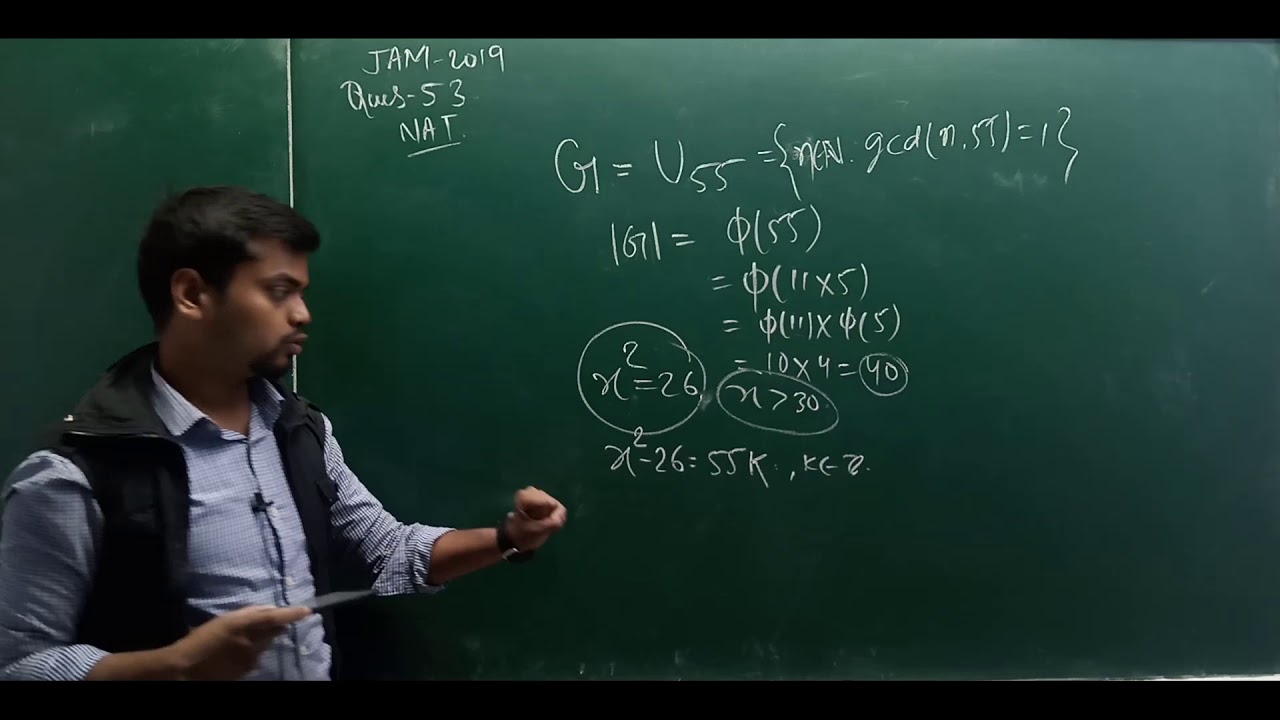 JAM-2019
Ques-53
NAT.
G = U₅₅ = {n∈ℕ: gcd(n,55)=1}
|G| = φ(55)
= φ(11×5)
= φ(11)×φ(5)
= 10×4 = 40
x²=26, x>30.
x²-26=55K, K∈Z.